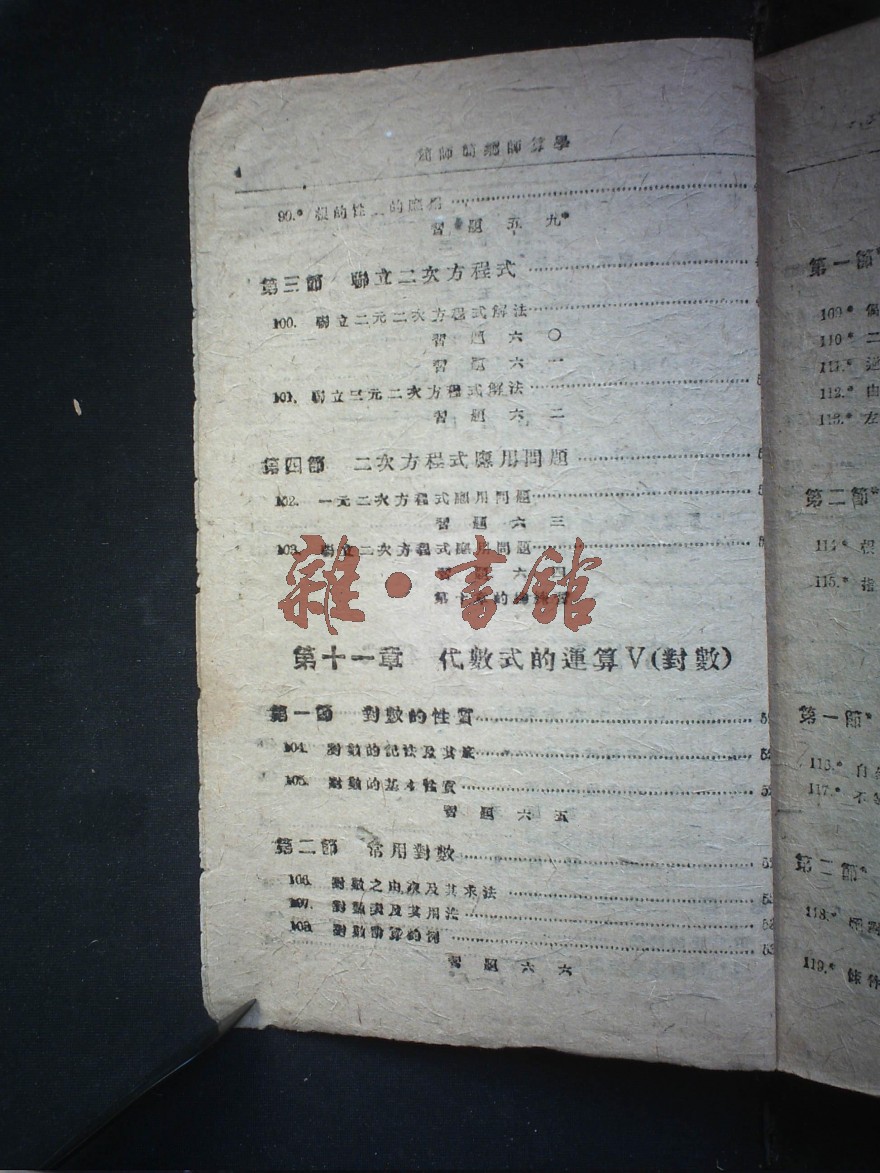 簡師簡鄉師算學
99.* 根的性質的應用
習題五九*
第三節 聯立二次方程式
100. 聯立二元二次方程式解法
習題六〇
習題六一
101. 聯立三元二次方程式解法
習題六二
第四節 二次方程式應用問題
102. 一元二次方程式應用問題
習題六三
103. 聯立二次方程式應用問題
習題六四
第十章的
雜·書館
第十一章 代數式的運算V(對數)
第一節 對數的性質
104. 對數的記法及其底
105. 對數的基本性質
習題六五
第二節 常用對數
106. 對數之由來及其求法
107. 對數表及其用法
108. 對數計算的例
習題六六
第一節*
109.*
110.* 二
111.*
112.* 由
113.* 左
第二節*
114.*
115.* 指
第一節*
116.* 自
117.* 不
第二節*
118.*
119.* 條件